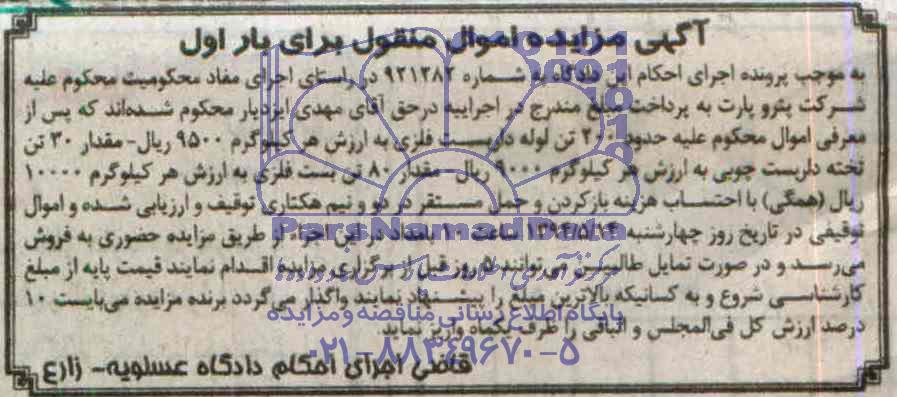 آگهی مزایده اموال منقول برای بار اول
به موجب پرونده اجرای احکام این دادگاه به شماره ۹۲۱۲۸۲ در راستای اجرای مفاد محکومیت محکوم علیه
شرکت پترو پارت به پرداخت مبلغ مندرج در اجراییه درحق آقای مهدی ایزدیار محکوم شده‌اند که پس از
معرفی اموال محکوم علیه حدود ۲۰۰ تن لوله داربست فلزی به ارزش هر کیلوگرم ۹۵۰۰ ریال- مقدار ۳۰ تن
تخته داربست چوبی به ارزش هر کیلوگرم ۹۰۰۰ ریال- مقدار ۸۰ تن بست فلزی به ارزش هر کیلوگرم ۱۰۰۰۰
ریال (همگی) با احتساب هزینه بازکردن و حمل مستقر در دو و نیم هکتاری توقیف و ارزیابی شده و اموال
توقیفی در تاریخ روز چهارشنبه ۱۳۹۴/۵/۱۴ ساعت ۱۰ بامداد در این اجراء از طریق مزایده حضوری به فروش
می‌رسد و در صورت تمایل طالبین می‌توانند ۵ روز قبل از برگزاری مزایده اقدام نمایند قیمت پایه از مبلغ
کارشناسی شروع و به کسانیکه بالاترین مبلغ را پیشنهاد نمایند واگذار می‌گردد برنده مزایده می‌بایست ۱۰
درصد ارزش کل فی‌المجلس و الباقی را ظرف یکماه واریز نماید
قاضی اجرای احکام دادگاه عسلویه- زارع
ParsNamadData
پایگاه اطلاع رسانی مناقصه و مزایده
۰۲۱-۸۸۳۴۹۶۷۰-۵